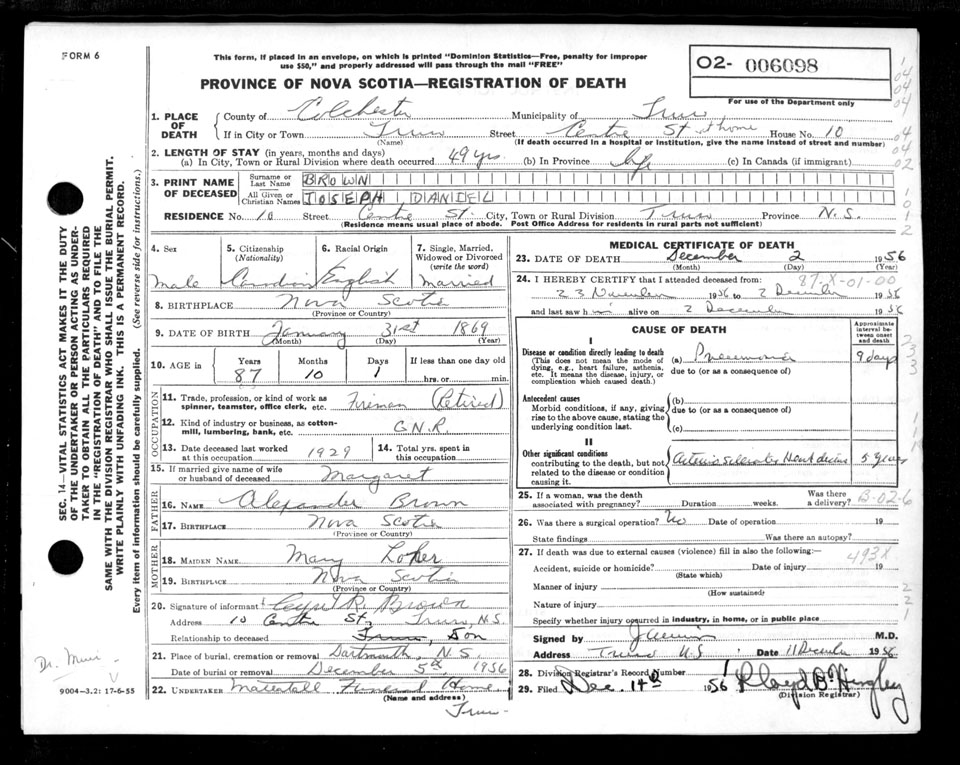 FORM 6
This form, if placed in an envelope, on which is printed "Dominion Statistics—Free, penalty for improper
use $50," and properly addressed will pass through the mail "FREE"
PROVINCE OF NOVA SCOTIA—REGISTRATION OF DEATH
O2- 006098
For use of the Department only
1. PLACE OF DEATH
County of Colchester Municipality of Truro
If in City or Town Truro Street Centre St at home House No. 10
(Name) (If death occurred in a hospital or institution, give the name instead of street and number)
2. LENGTH OF STAY (in years, months and days)
(a) In City, Town or Rural Division where death occurred 49 yrs (b) In Province life (c) In Canada (if immigrant)
3. PRINT NAME OF DECEASED
Surname or Last Name BROWN
All Given or Christian Names JOSEPH DANIEL
RESIDENCE No. 10 Street Centre St. City, Town or Rural Division Truro Province N.S.
(Residence means usual place of abode. Post Office Address for residents in rural parts not sufficient)
4. Sex 5. Citizenship (Nationality) 6. Racial Origin 7. Single, Married, Widowed or Divorced (write the word)
Male Canadian English married
8. BIRTHPLACE Nova Scotia
(Province or Country)
9. DATE OF BIRTH January 31st 1869
(Month) (Day) (Year)
10. AGE in Years Months Days If less than one day old
87 10 1 hrs. or min.
OCCUPATION
11. Trade, profession, or kind of work as spinner, teamster, office clerk, etc. Fireman (Retired)
12. Kind of industry or business, as cotton-mill, lumbering, bank, etc. C.N.R.
13. Date deceased last worked at this occupation 1929 14. Total yrs. spent in this occupation
15. If married give name of wife or husband of deceased Margaret
FATHER
16. NAME Alexander Brown
17. BIRTHPLACE Nova Scotia
(Province or Country)
MOTHER
18. MAIDEN NAME Mary
19. BIRTHPLACE Nova Scotia
(Province or Country)
20. Signature of informant R. Brown
Address 10 Centre St., Truro, N.S.
Relationship to deceased Son
21. Place of burial, cremation or removal Dartmouth, N.S.
Date of burial or removal December 5th 1956
22. UNDERTAKER Mattatall Funeral Home
(Name and address)
Truro
MEDICAL CERTIFICATE OF DEATH
23. DATE OF DEATH December 2 1956
(Month) (Day) (Year)
24. I HEREBY CERTIFY that I attended deceased from: 87.X-01-00
23 November 1956 to 2 December 1956
and last saw him alive on 2 December 1956
CAUSE OF DEATH
Approximate interval between onset and death
I
Disease or condition directly leading to death (a) Pneumonia 9 days
(This does not mean the mode of due to (or as a consequence of)
dying, e.g., heart failure, asthenia,
etc. It means the disease, injury, or
complication which caused death.)
Antecedent causes (b)
Morbid conditions, if any, giving due to (or as a consequence of)
rise to the above cause, stating the
underlying condition last. (c)
II
Other significant conditions
contributing to the death, but not
related to the disease or condition
causing it.
Arteriosclerotic Heart disease 5 years
25. If a woman, was the death associated with pregnancy? Duration weeks. Was there a delivery? B-02-6
26. Was there a surgical operation? No Date of operation 19
State findings Was there an autopsy?
27. If death was due to external causes (violence) fill in also the following:—
493X
Accident, suicide or homicide? Date of injury 19
(State which)
Manner of injury
(How sustained)
Nature of injury
Specify whether injury occurred in industry, in home, or in public place
Signed by M.D.
Address Truro N.S. Date 11 December 1956
28. Division Registrar's Record Number
29. Filed Dec. 14th 1956 Lloyd B. Hingley
(Division Registrar)
SEC. 14—VITAL STATISTICS ACT MAKES IT THE DUTY
OF THE UNDERTAKER OR PERSON ACTING AS UNDER-
TAKER TO OBTAIN ALL THE PARTICULARS REQUIRED
IN THE "REGISTRATION OF DEATH" AND TO FILE THE
SAME WITH THE DIVISION REGISTRAR WHO SHALL ISSUE THE BURIAL PERMIT.
WRITE PLAINLY WITH UNFADING INK. THIS IS A PERMANENT RECORD.
Every item of information should be carefully supplied. (See reverse side for instructions.)
Dr. Muir
9004-3.2: 17-6-55